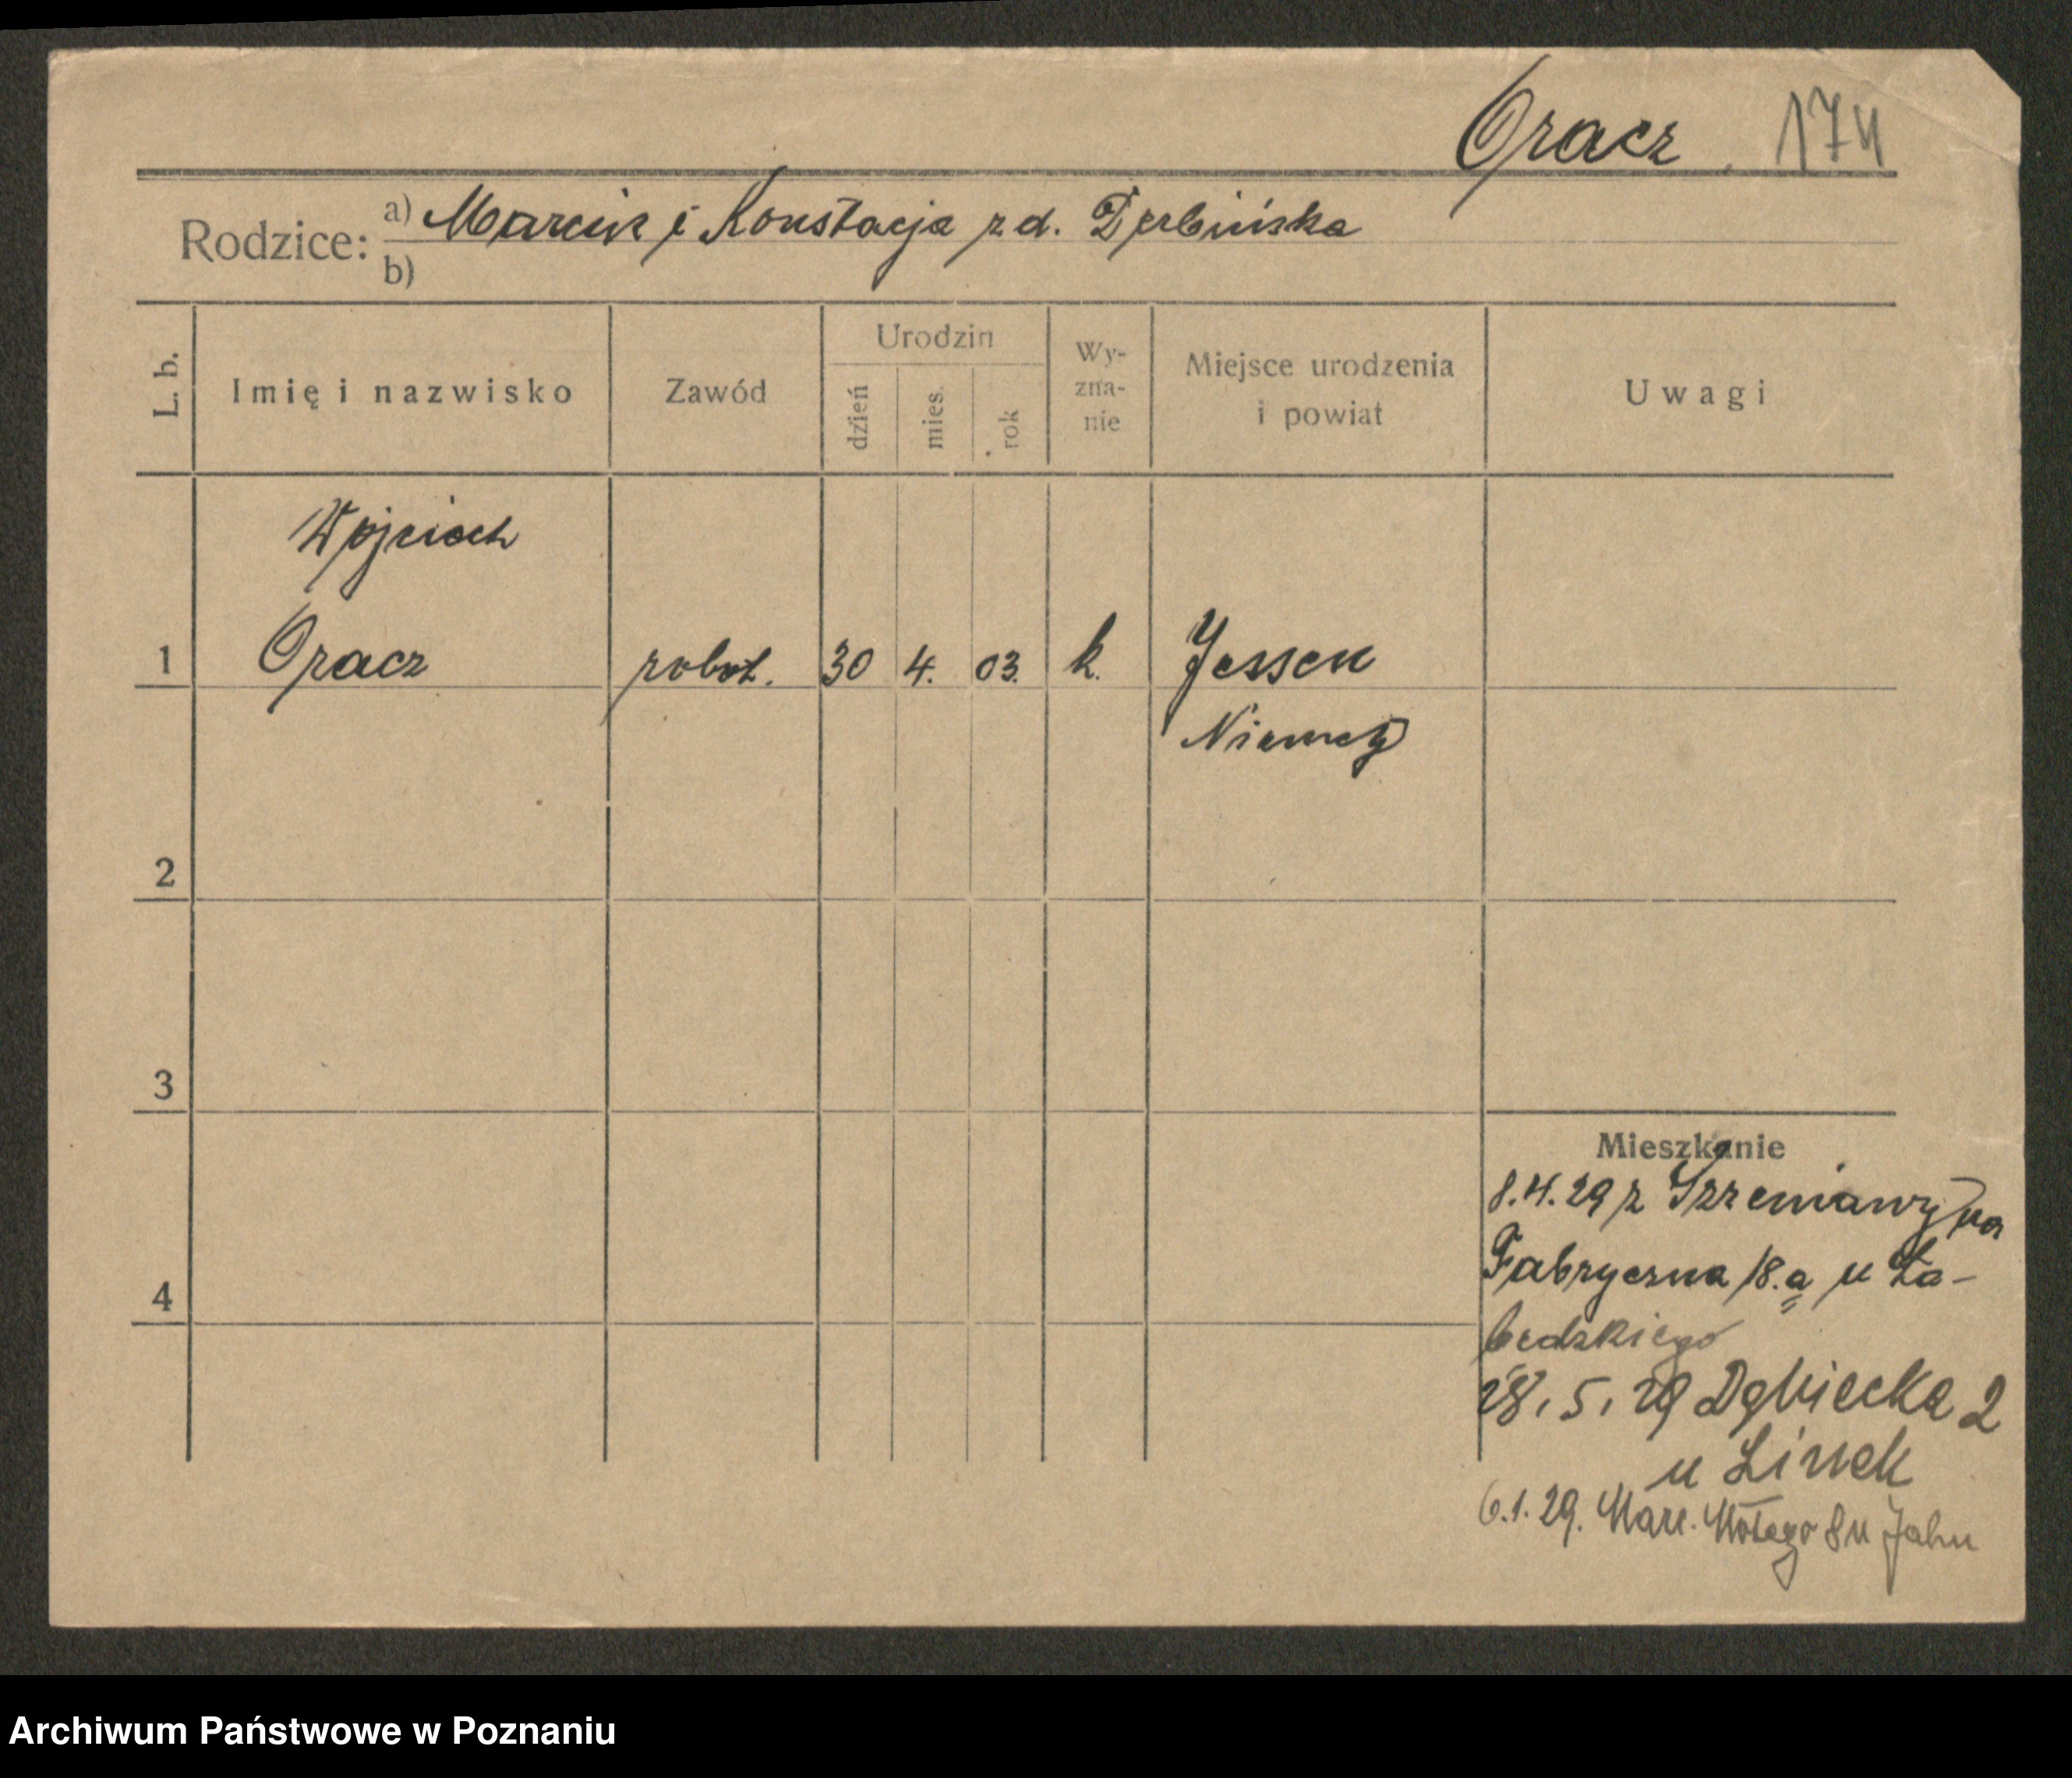 Oracz 174
Rodzice: a) Marcin i Konstacja z d. Derbińska
b)
L. b. Imię i nazwisko Zawód Urodzin dzień mies. rok Wy-zna-nie Miejsce urodzenia i powiat Uwagi
Wojciech
1 Oracz robot. 30 4. 03. k. Jessen
Niemcy
2
3
Mieszkanie
8.4.29 z Srzeniawy na
Fabryczna 18.a u Ła-
4
bedzkiego
28.5.29 Dębiecka 2
u Linek
6.1.29. Marc. 8 u Jahn
Archiwum Państwowe w Poznaniu